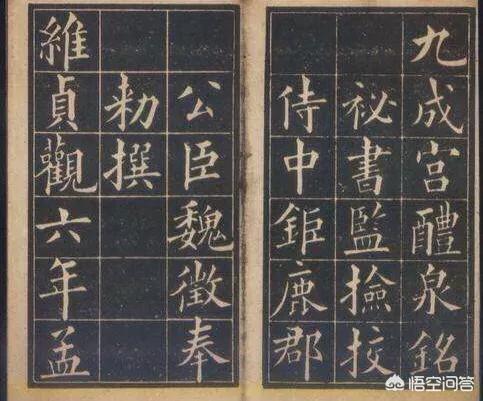 九成宫醴泉銘
祕書監撿挍
侍中鉅鹿郡
公臣魏徵奉
勑撰
維貞觀六年孟
悟空问答